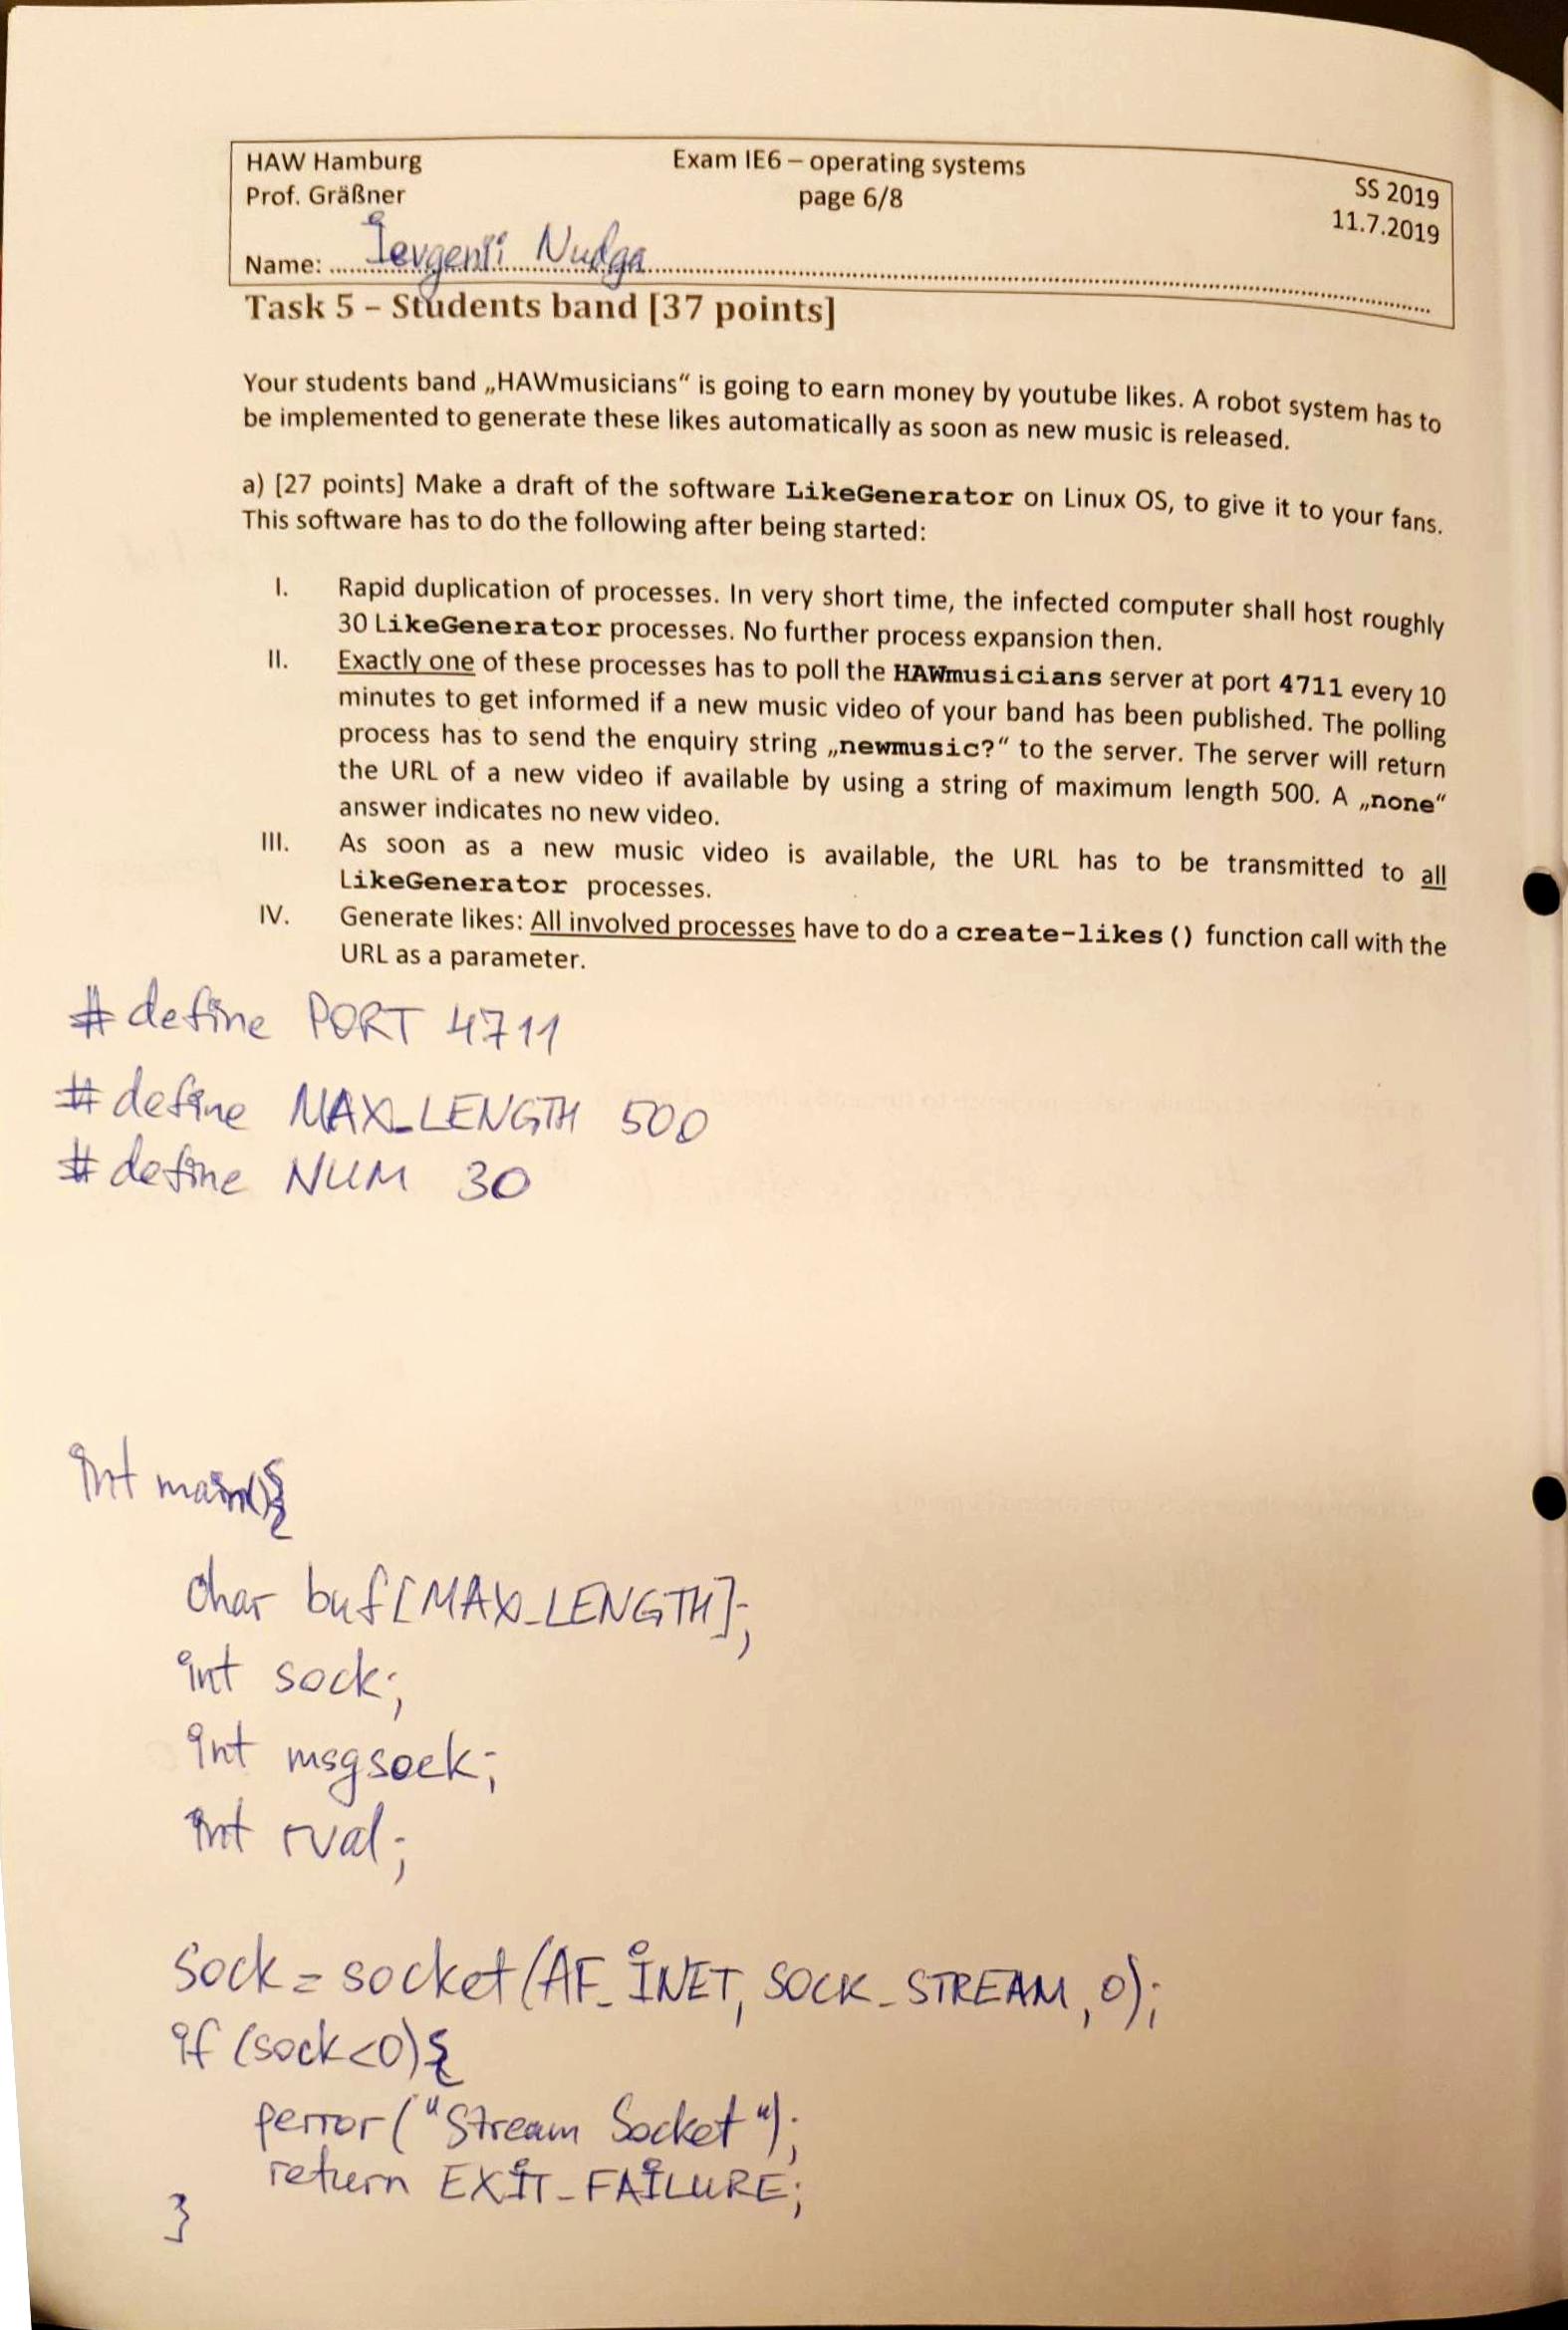 HAW Hamburg
Exam IE6 – operating systems
SS 2019
Prof. Gräßner
page 6/8
11.7.2019
Name: Ievgenii Nudga
Task 5 – Students band [37 points]
Your students band „HAWmusicians“ is going to earn money by youtube likes. A robot system has to
be implemented to generate these likes automatically as soon as new music is released.
a) [27 points] Make a draft of the software LikeGenerator on Linux OS, to give it to your fans.
This software has to do the following after being started:
I. Rapid duplication of processes. In very short time, the infected computer shall host roughly
30 LikeGenerator processes. No further process expansion then.
II. Exactly one of these processes has to poll the HAWmusicians server at port 4711 every 10
minutes to get informed if a new music video of your band has been published. The polling
process has to send the enquiry string „newmusic?“ to the server. The server will return
the URL of a new video if available by using a string of maximum length 500. A „none“
answer indicates no new video.
III. As soon as a new music video is available, the URL has to be transmitted to all
LikeGenerator processes.
IV. Generate likes: All involved processes have to do a create-likes() function call with the
URL as a parameter.
# define PORT 4711
# define MAX_LENGTH 500
# define NUM 30
int main(){
char buf[MAX_LENGTH];
int sock;
int msgsock;
int rval;
sock = socket(AF_INET, SOCK_STREAM, 0);
if (sock<0){
perror("Stream Socket");
return EXIT_FAILURE;
}